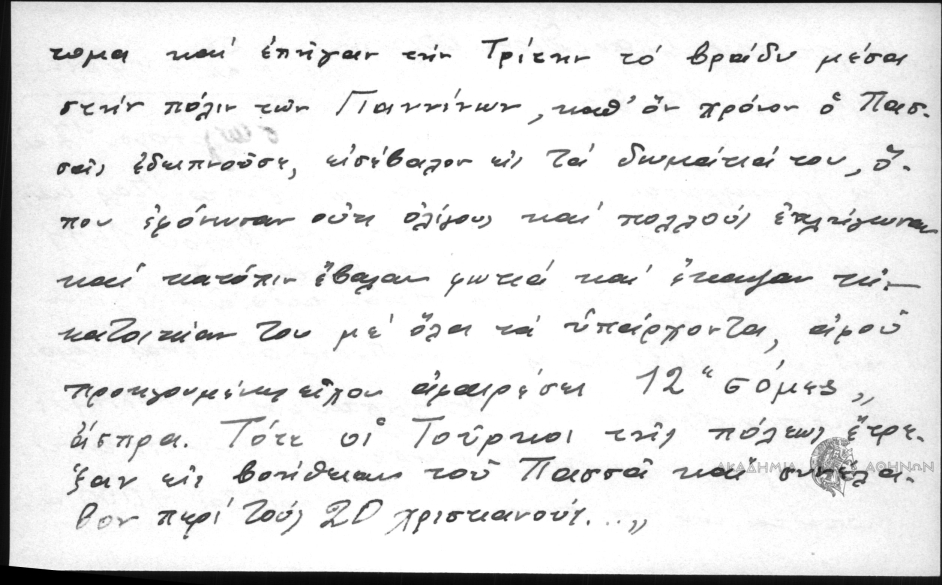 τομα καί ἐπῆγαν τήν Τρίτην τό βράδυ μέσα
στήν πόλιν τῶν Γιαννίνων, καθ' ὅν χρόνον ὁ Πασ-
σᾶς ἐδειπνοῦσε, εἰσέβαλον εἰς τά δωμάτιά του, ὅ-
που ἐφόνευσαν οὐκ ὀλίγους καί πολλούς ἐπλήγωσαν
καί κατόπιν ἔβαλαν φωτιά καί ἔκαψαν τήν
κατοικίαν του μέ ὅλα τά ὑπάρχοντα, ἀφοῦ
προηγουμένως εἶχον ἀφαιρέσει 12 "σόμες"
ἄσπρα. Τότε οἱ Τοῦρκοι τῆς πόλεως ἔτρε-
ξαν εἰς βοήθειαν τοῦ Πασσᾶ καί συνέλα-
βον περί τούς 20 χριστιανούς...„
ΑΚΑΔΗΜΙΑ ΑΘΗΝΩΝ